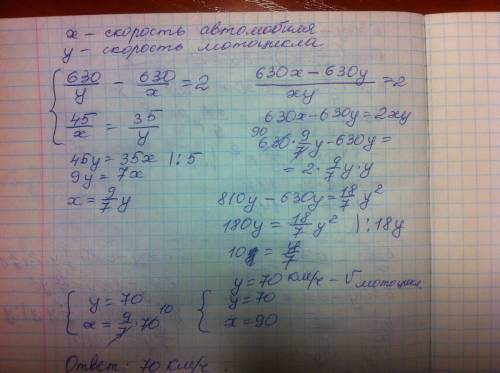 x – скорость автомобиля
y – скорость мотоцикла
{ 630/y − 630/x = 2
45/x = 35/y
45y = 35x | : 5
9y = 7x
x = 9/7 y
(630x − 630y)/xy = 2
630x − 630y = 2xy
90
630 · 9/7 y − 630y =
= 2 · 9/7 y · y
810y − 630y = 18/7 y²
180y = 18/7 y² ) : 18y
10 = y/7
y = 70 км/ч – V мотоцикл.
{ y = 70
x = 9/7 · 70 10
{ y = 70
x = 90
Ответ: 70 км/ч.